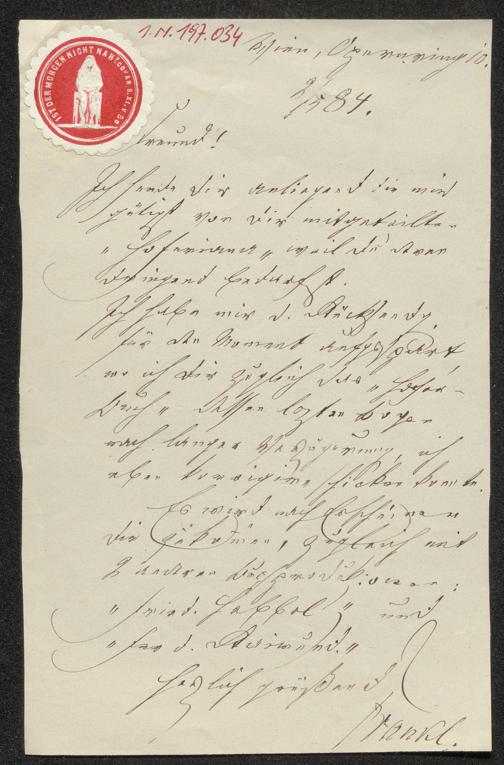 I.N. 197.034
IST DER MORGEN NICHT NAH?
Wien, Opernring 10.
2/5 84.
Freund!
Ich sende Dir anliegend die mir
gütigst von Dir mitgeteilten
"Hoferiana" weil Du deren
dringend bedarfst.
Ich habe mir d. Rücksendg
für den Moment aufgespart,
wo ich Dir zugleich das "Hofer-
buch" dessen letzten Bogen
nach langer Verzögerung, ich
eben korrigirt
Es wird nach Erscheinen
Dir zukommen, zugleich mit
2 andren
"Fried. Hebbel" und
"Ferd. Raimund."
Herzlich grüßend
Frankl.